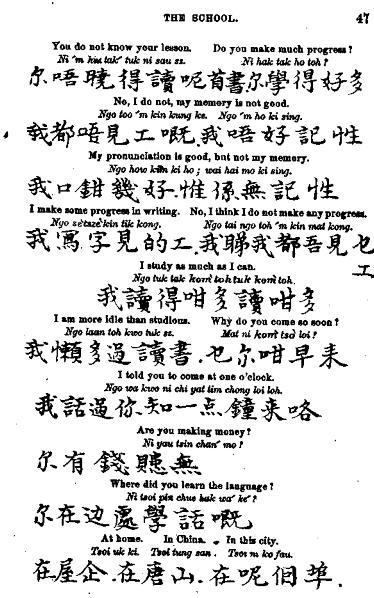 THE SCHOOL. 47
You do not know your lesson. Do you make much progress?
Ni 'm hiu tak' tuk ni sau sz. Ni hak tak ho toh?
尔唔曉得讀呢首書尔學得好多
No, I do not, my memory is not good.
Ngo too 'm kin kung ke. Ngo 'm ho ki sing.
我都唔見工嘅.我唔好記性
My pronunciation is good, but not my memory.
Ngo how kim ki ho; wai hai mo ki sing.
我口鉗幾好.惟係無記性
I make some progress in writing. No, I think I do not make any progress.
Ngo sé tszé kin tik kong. Ngo tai ngo toh 'm kin mat kong.
我寫字見的工.我睇我都吾見乜
工
I study as much as I can.
Ngo tuk tak kom toh tuk kom toh.
我讀得咁多讀咁多
I am more idle than studious. Why do you come so soon?
Ngo laan toh kwo tuk sz. Mat ni kom tso loi?
我懶多過讀書.乜尔咁早来
I told you to come at one o'clock.
Ngo wa kwo ni chi yat tim chong loi loh.
我話過你知一点鐘来咯
Are you making money?
Ni yau tsin chan' mo?
尔有錢賺無
Where did you learn the language?
Ni tsoi pin chue hak wa' ke'?
尔在边處學話嘅
At home. In China. In this city.
Tsoi uk ki. Tsoi tung san. Tsoi ni ko fau.
在屋企.在唐山.在呢個埠.